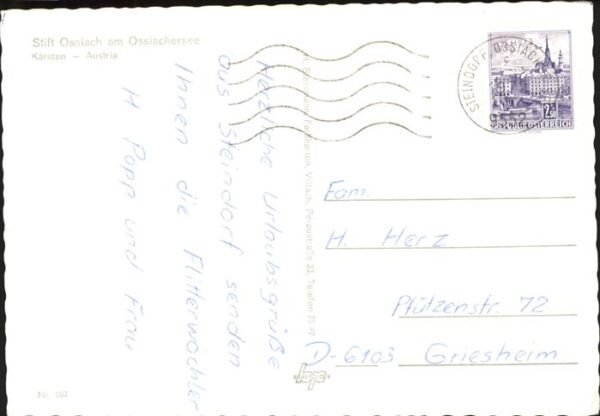 Stift Ossiach am Ossiachersee
Kärnten – Austria
Herzliche Urlaubsgrüße
aus Steindorf senden
Ihnen die Flitterwöchler
H Popp und Frau
Villach, Peraustraße 33, Telefon
STEINDORF OSSIACH
9552
2
REPUBLIK ÖSTERREICH
Fam.
H. Herz
Pfützenstr. 72
D-6103 Griesheim
Nr. 167